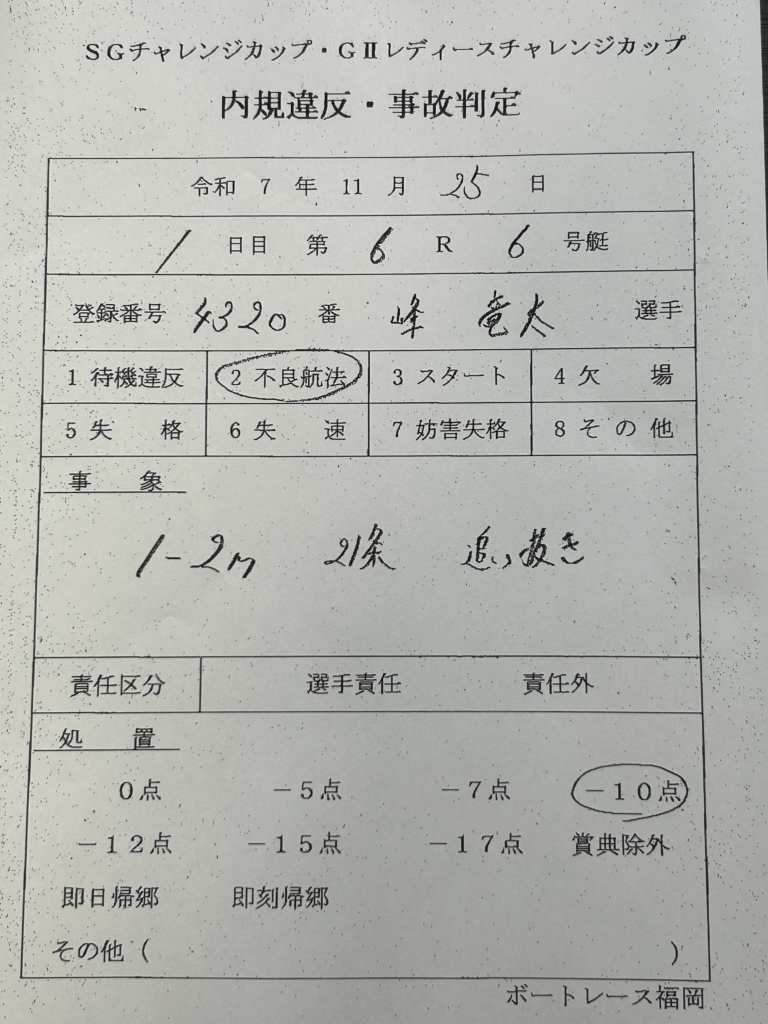 SGチャレンジカップ・GⅡレディースチャレンジカップ
内規違反・事故判定
令和 7 年 11 月 25 日
1 日目 第 6 R 6 号艇
登録番号 4320 番 峰 竜太 選手
1 待機違反 2 不良航法 3 スタート 4 欠 場
5 失 格 6 失 速 7 妨害失格 8 そ の 他
事 象
1-2m 21条 追い抜き
責任区分 選手責任 責任外
処 置
0点 -5点 -7点 -10点
-12点 -15点 -17点 賞典除外
即日帰郷 即刻帰郷
その他( )
ボートレース福岡